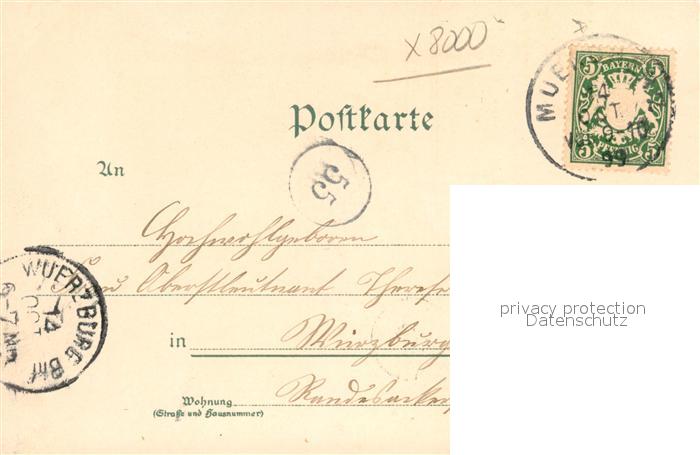 x 8000
5 BAYERN 5
5 PFENNIG 5
MUE
99
Postkarte
An
55
Hochwohlgeboren
Frau Oberstleutnant Therese
WUERZBURG Bhf
14
OCT
6-7 Nm
in Würzburg
Randesacker
Wohnung
(Straße und Hausnummer)
privacy protection
Datenschutz